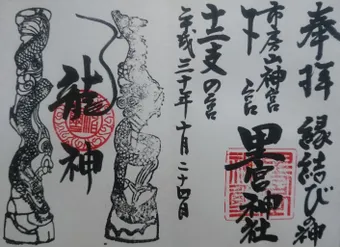 奉拝 縁結びの神
里宮神社
市房山神宮
下宮
十二支の宮
平成三十年十月二十四日
龍神